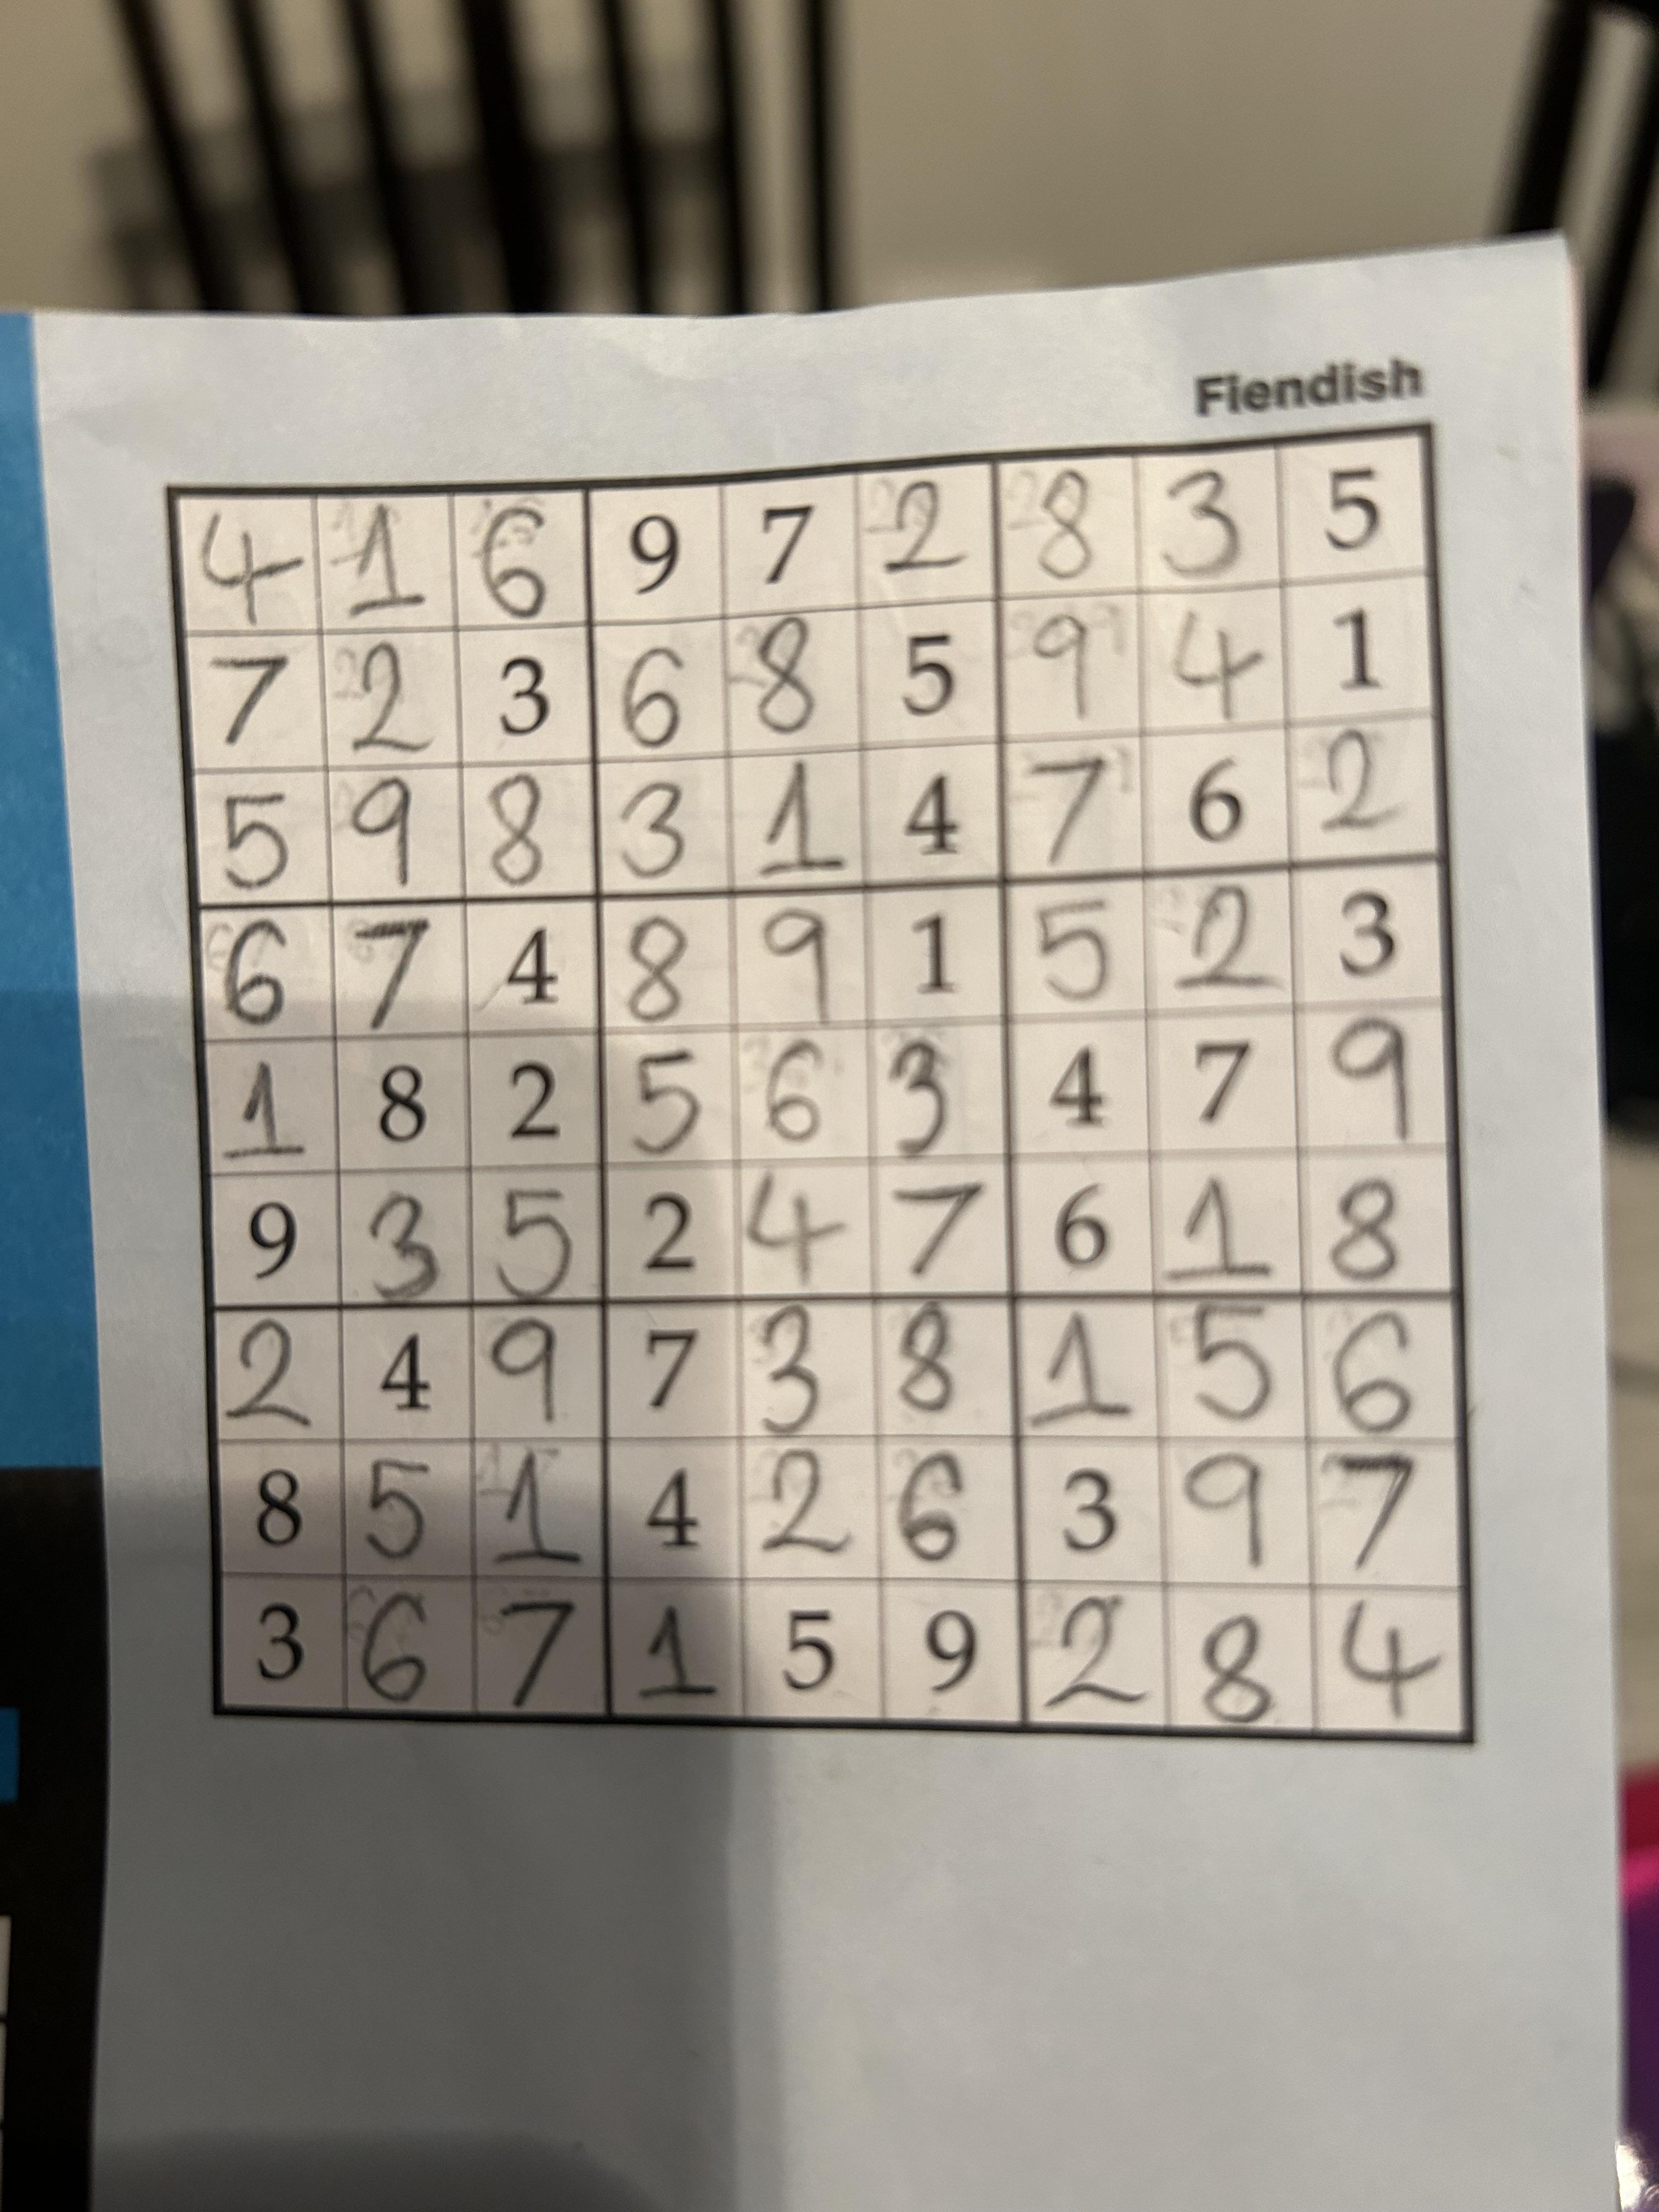 Fiendish
4 1 6 9 7 2 8 3 5
7 2 3 6 8 5 9 4 1
5 9 8 3 1 4 7 6 2
6 7 4 8 9 1 5 2 3
1 8 2 5 6 3 4 7 9
9 3 5 2 4 7 6 1 8
2 4 9 7 3 8 1 5 6
8 5 1 4 2 6 3 9 7
3 6 7 1 5 9 2 8 4